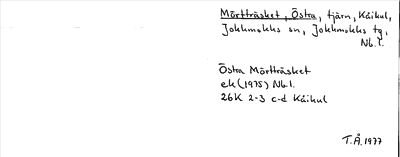 Mörtträsket, Östra, tjärn, Kåikul,
Jokkmokks sn, Jokkmokks tg,
Nb.l.
Östra Mörtträsket
ek (1975) Nb.l.
26K 2-3 c-d Kåikul
T.Å. 1977